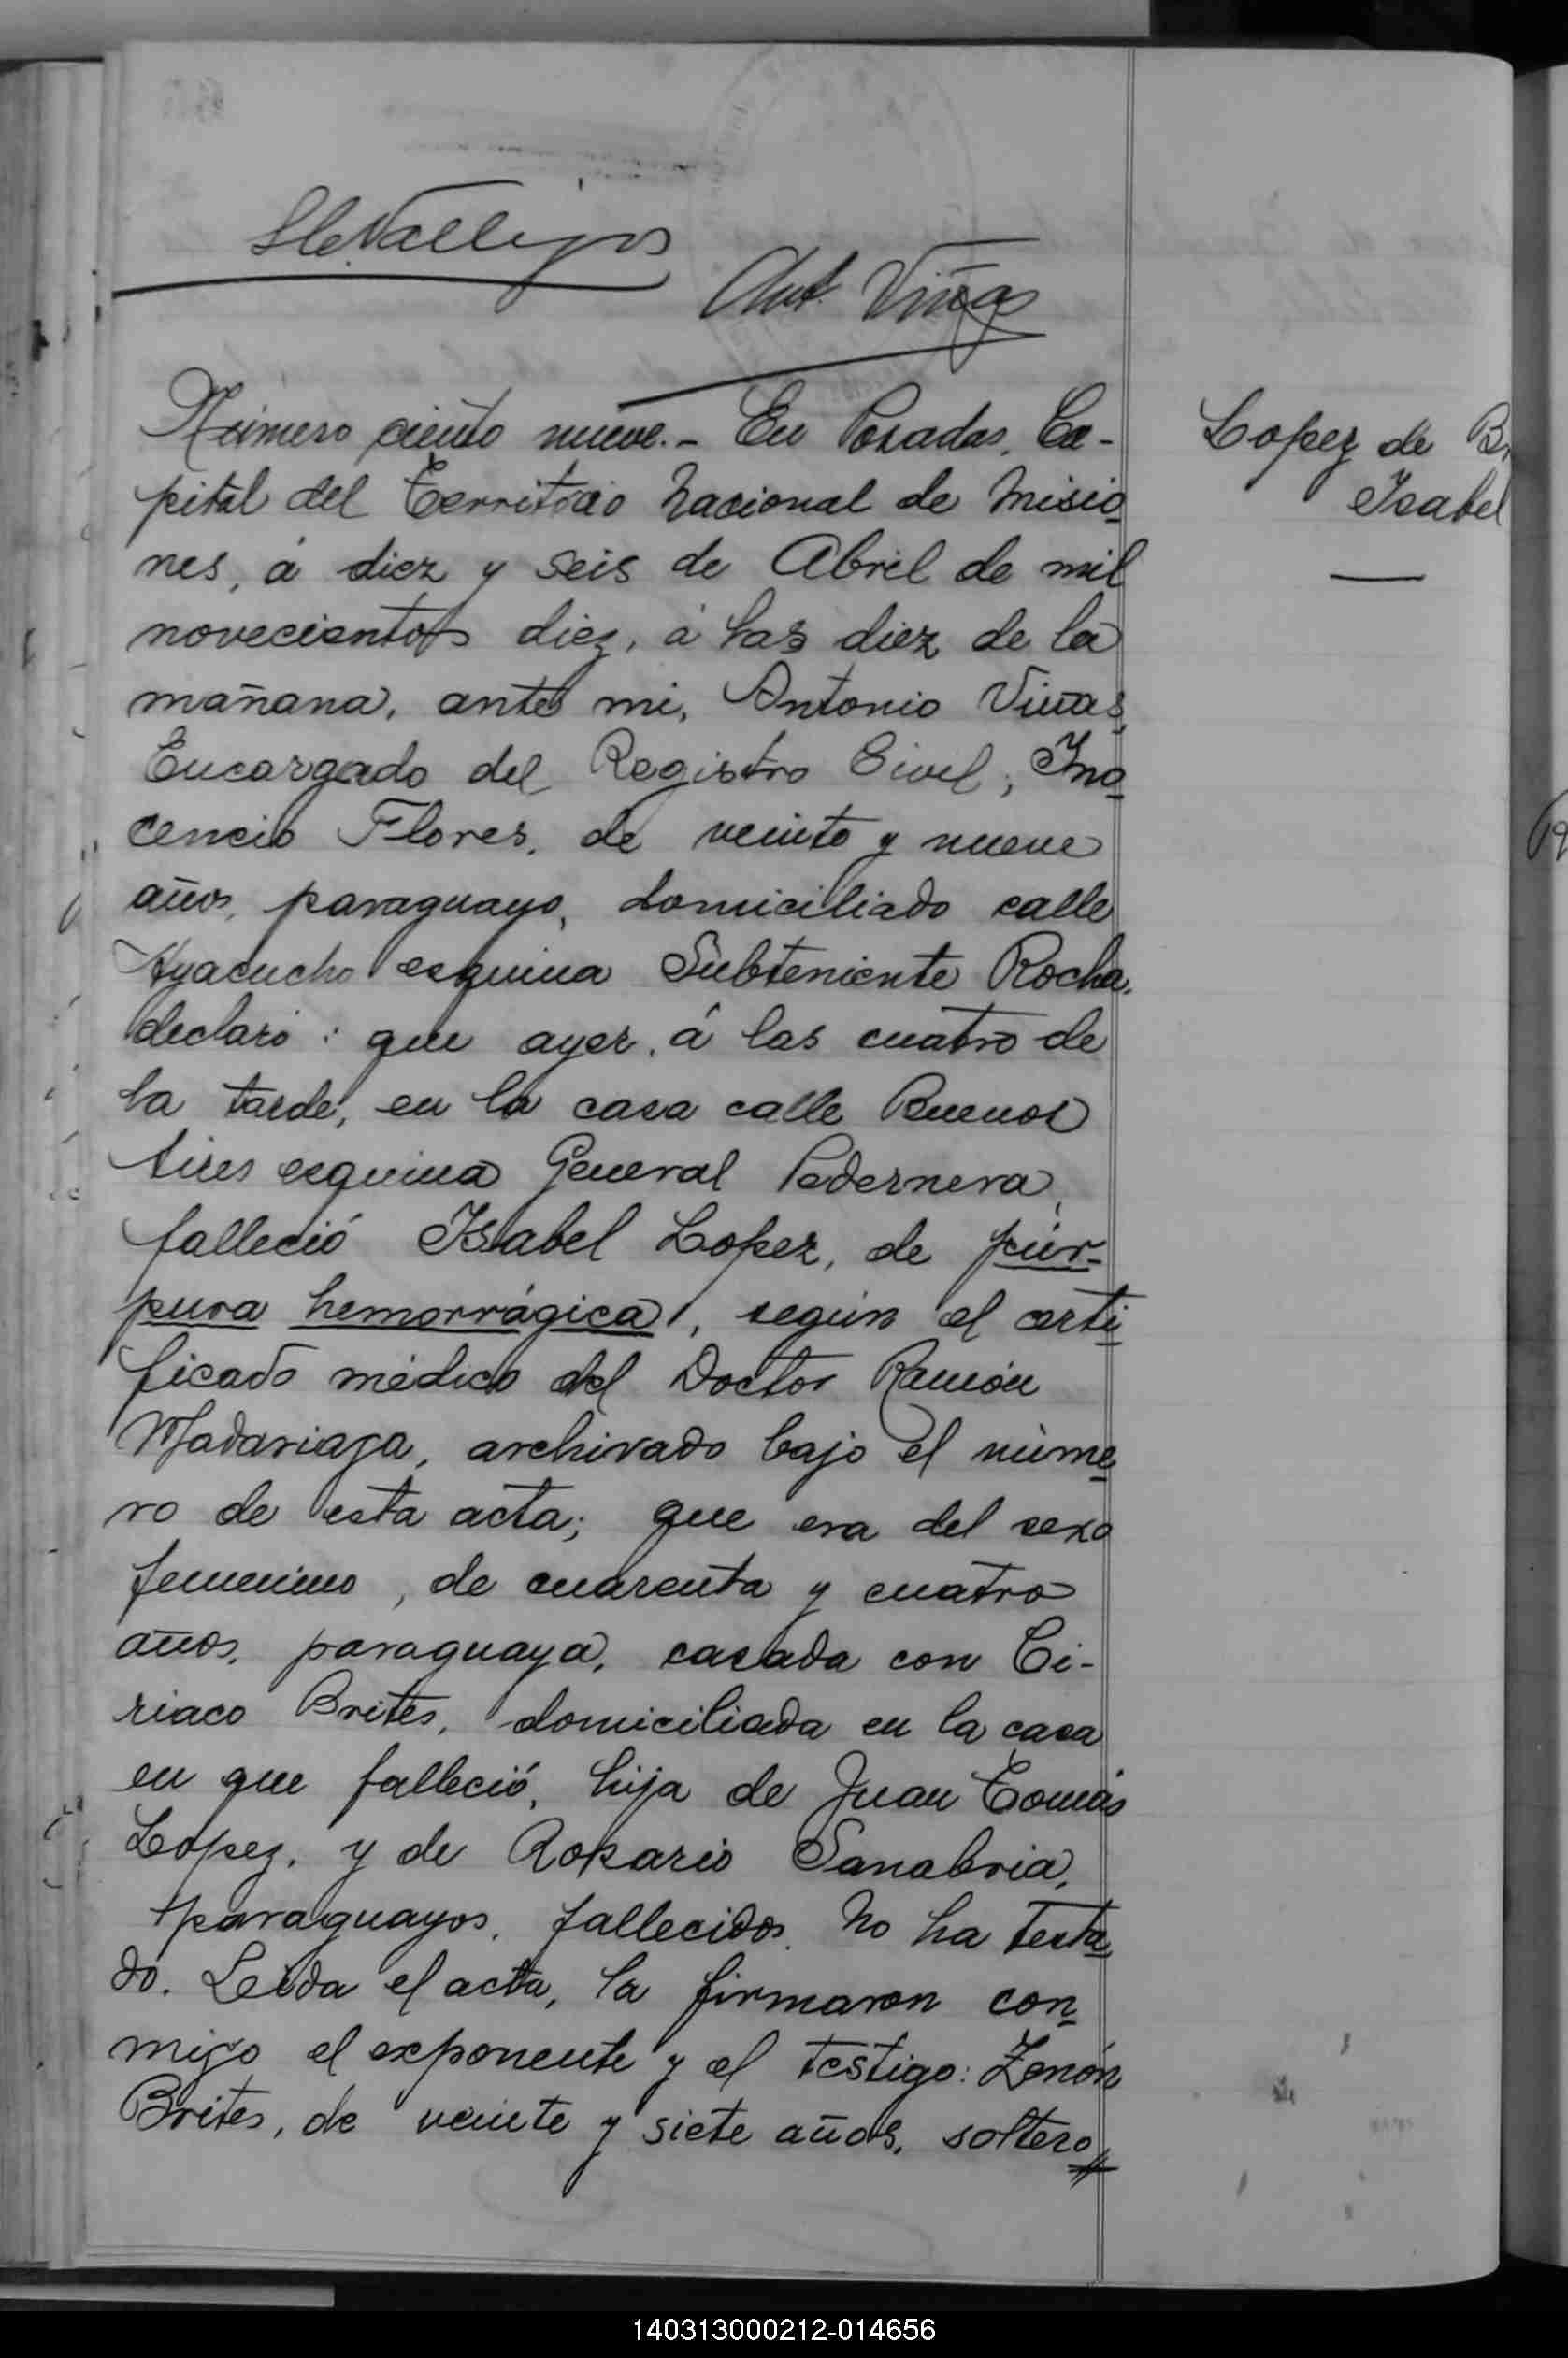 Vallejos
Ant. Viñas
Número ciento nueve.- En Posadas, Ca-
pital del Territorio Nacional de Misio
nes, á diez y seis de Abril de mil
novecientos diez, á las diez de la
mañana, ante mi, Antonio Viñas,
Encargado del Registro Civil, Ino
cencio Flores, de veinte y nueve
años, paraguayo, domiciliado calle
Ayacucho esquina Subteniente Rocha,
declaró: que ayer, á las cuatro de
la tarde, en la casa calle Buenos
Aires esquina General Pedernera,
falleció Isabel Lopez, de púr-
pura hemorrágica, según el certi
ficado médico del Doctor Ramón
Madariaga, archivado bajo el núme
ro de esta acta; que era del sexo
femenino, de cuarenta y cuatro
años, paraguaya, casada con Ci-
riaco Brites, domiciliada en la casa
en que falleció, hija de Juan Tomás
Lopez, y de Rosario Sanabria,
paraguayos, fallecidos. No ha testa
do. Leida el acta, la firmaron con
migo el exponente y el testigo: Zenón
Brites, de veinte y siete años, soltero
Lopez de B
Isabel
140313000212-014656